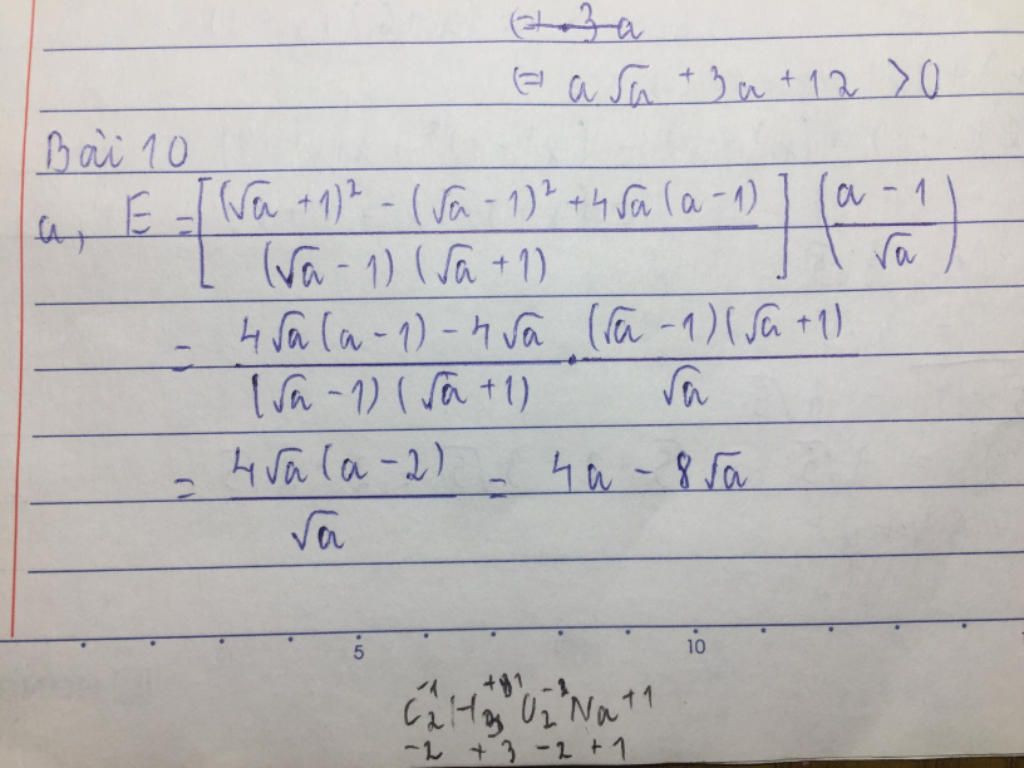 (=) . 3 a
(=) a √a + 3a + 12 > 0
Bài 10
a, E = [ ((√a + 1)² - (√a - 1)² + 4√a (a - 1)) / ((√a - 1) (√a + 1)) ] ( (a - 1) / √a )
= (4√a (a - 1) - 4√a) / ((√a - 1) (√a + 1)) . ((√a - 1) (√a + 1)) / √a
= (4√a (a - 2)) / √a = 4a - 8√a
5 10
-2 + 3 - 2 + 1